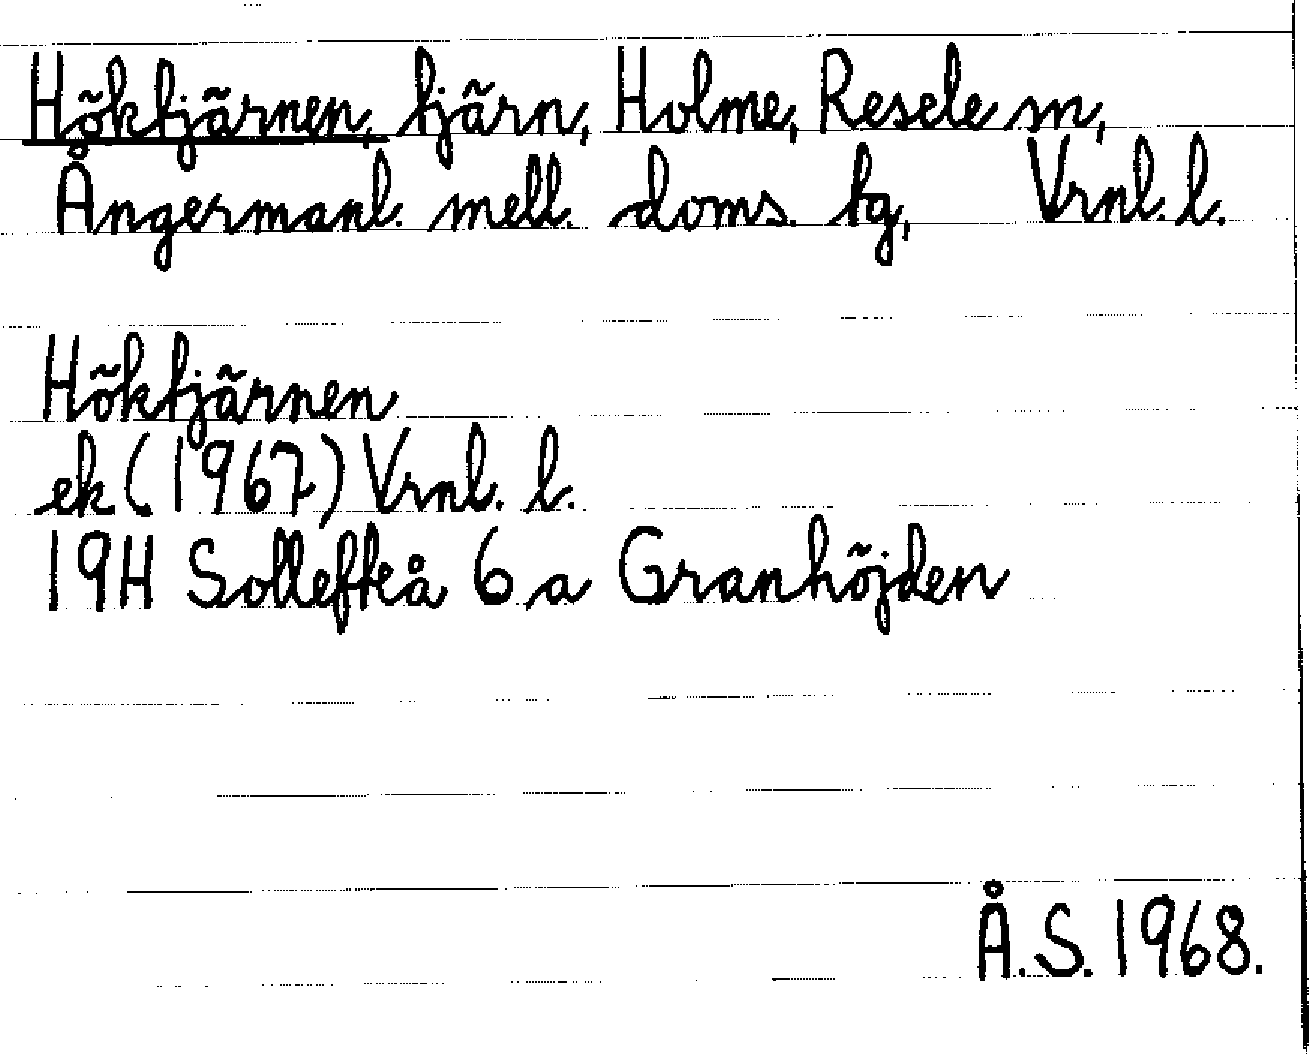 Höktjärnen, tjärn, Holme, Resele sn,
Ångermanl. mell. doms. tg, Vrnl. l.
Höktjärnen
ek (1967) Vrnl. l.
19H Sollefteå 6 a Granhöjden
Å.S. 1968.